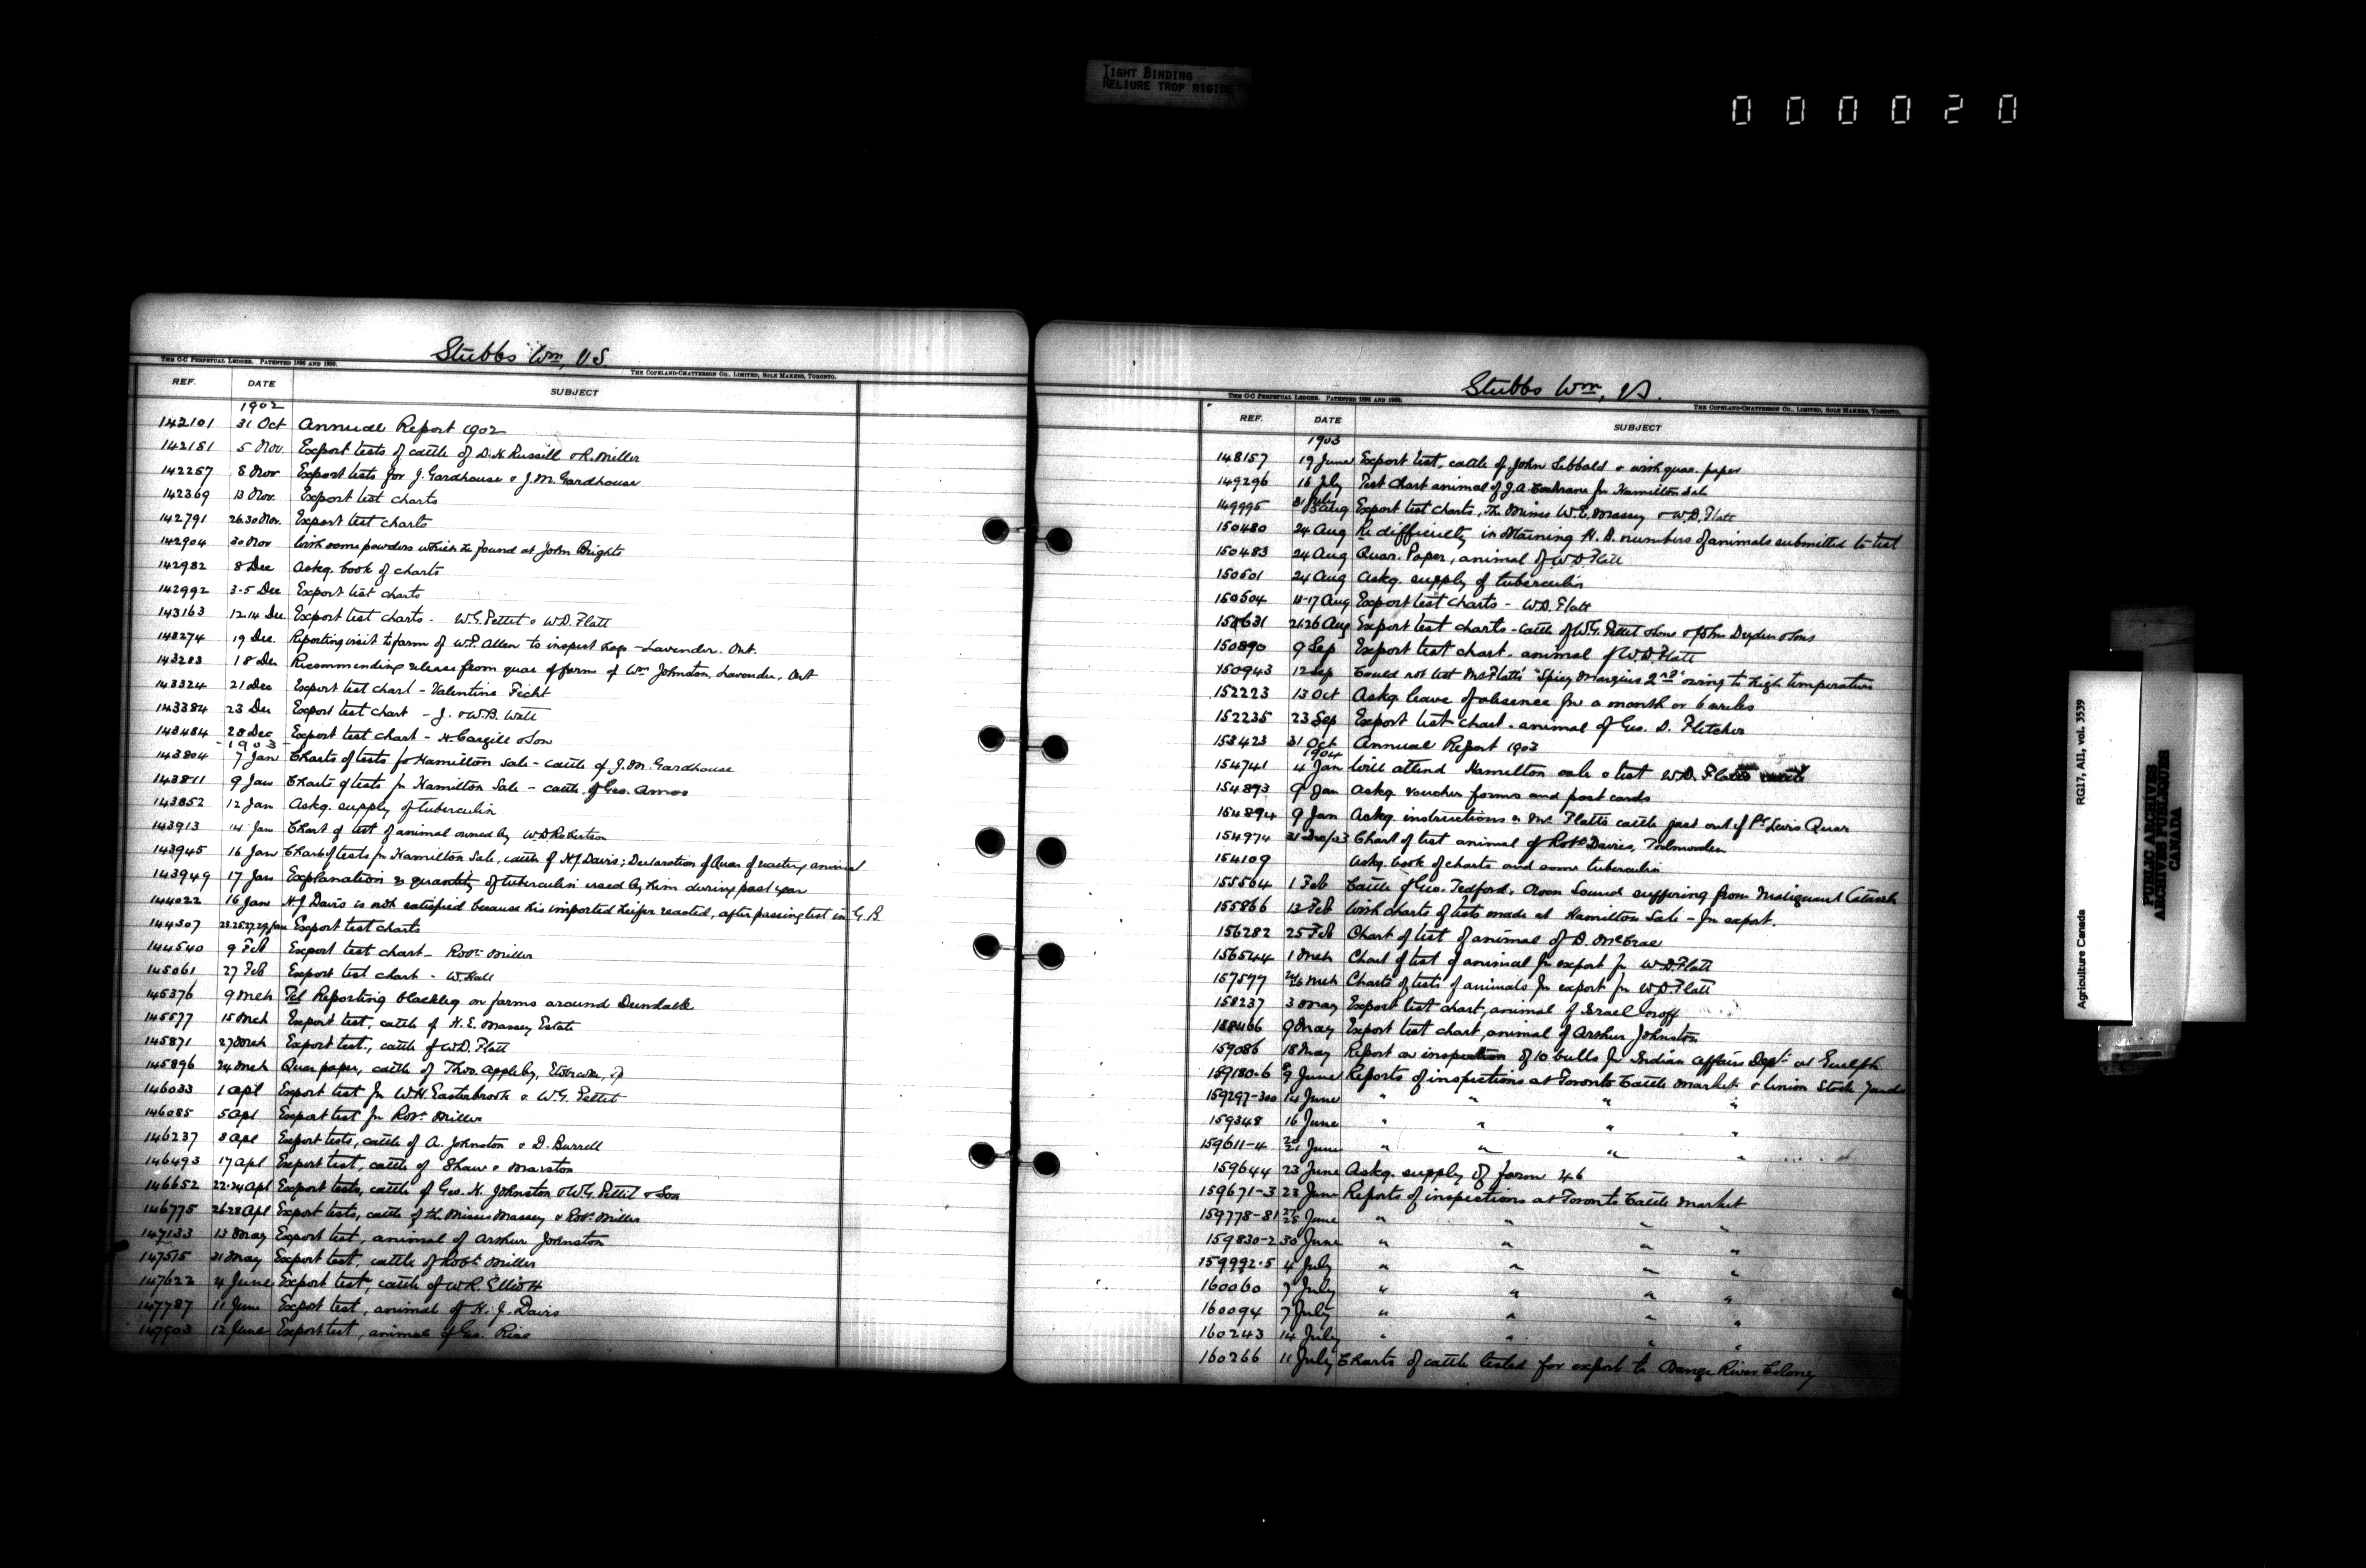 TIGHT BINDING
RELIURE TROP RIGIDE
000020
Stubbs Wm, VS.
THE C-C PERPETUAL LEDGER. PATENTED 1896 AND 1900.
THE COPELAND-CHATTERSON CO., LIMITED, SOLE MAKERS, TORONTO.
REF. DATE SUBJECT
1902
142101 31 Oct Annual Report 1902
142181 5 Nov. Export tests of cattle of D.H. Russill & R. Miller
142257 8 Nov Export tests for J. Gardhouse & J.M. Gardhouse
142369 13 Nov. Export test charts
142791 26.30 Nov. Export test charts
142904 30 Nov With some powders which he found at John Brights
142982 8 Dec Askg. book of charts
142992 3-5 Dec Export test charts
143163 12.14 Dec Export test charts - W.G. Pettit & W.D. Flatt
143274 19 Dec. Reporting visit to farm of W.P. Allen to inspect hogs - Lavender. Ont.
143283 18 Dec Recommending release from quar of farm of Wm Johnston, Lavender, Ont
143324 21 Dec Export test chart - Valentine Ficht
143384 23 Dec Export test chart - J. & W.B. Watt
143484 28 Dec Export test chart - H. Cargill & Son
1903
143804 7 Jan Charts of tests for Hamilton Sale - cattle of J.M. Gardhouse
143811 9 Jan Charts of tests for Hamilton Sale - cattle of Geo. Amos
143852 12 Jan Askg. supply of tuberculin
143913 14 Jan Chart of test of animal owned by W.D. Robertson
143945 16 Jan Chart of tests for Hamilton Sale, cattle of H.J. Davis; Declaration of Quar of reacting animal
143949 17 Jan Explanation re quantity of tuberculin used by him during past year
144022 16 Jan H.J. Davis is not satisfied because his imported heifer reacted, after passing test in G.B.
144307 23.25.27.29 Jan Export test charts
144540 9 Feb Export test chart - Robt. Miller
145061 27 Feb Export test chart - W. Hall
145376 9 Mch Tel Reporting blackleg on farms around Dundalk
145577 15 Mch Export test, cattle of H.E. Massey Estate
145871 27 Mch Export test, cattle of W.D. Flatt
145896 24 Mch Quar paper, cattle of Thos. Appleby,
146033 1 Apl Export test for W.H. Easterbrook & W.G. Pettit
146085 5 Apl Export test for Robt. Miller
146237 8 Apl Export tests, cattle of A. Johnston & D. Burrell
146493 17 Apl Export test, cattle of Shaw & Marston
146652 22.24 Apl Export tests, cattle of Geo. H. Johnston & W.G. Pettit & Son
146775 26.28 Apl Export tests, cattle of the Misses Massey & Robt. Miller
147133 13 May Export test, animal of Arthur Johnston
147515 31 May Export test, cattle of Robt. Miller
147622 4 June Export test, cattle of W.R. Elliott
147787 11 June Export test, animal of H.J. Davis
147903 12 June Export test, animal of Geo. Rice
Stubbs Wm, VS.
THE C-C PERPETUAL LEDGER. PATENTED 1896 AND 1900.
THE COPELAND-CHATTERSON CO., LIMITED, SOLE MAKERS, TORONTO.
REF. DATE SUBJECT
1903
148157 19 June Export test, cattle of John Sebbald & with quar. paper
149296 16 July Test chart animal of J.A. Cochrane for Hamilton Sale
149995 31 July Aug Export test charts, The Misses W.E. Massey & W.D. Flatt
150480 24 Aug Re difficulty in obtaining H.B. numbers of animals submitted to test
150483 24 Aug Quar. Paper, animal of W.D. Flatt
150501 24 Aug Askg. supply of tuberculin
150504 11-17 Aug Export test charts - W.D. Flatt
150631 21.26 Aug Export test charts - cattle of W.G. Pettit & Sons & John Dryden & Sons
150890 9 Sep Export test chart. animal of W.D. Flatt
150943 12 Sep Could not test Mr Flatt's "Spicy Marquis 2nd" owing to high temperature
152223 13 Oct Askg. leave of absence for a month or 6 weeks
152235 23 Sep Export test chart. animal of Geo. D. Fletcher
153423 31 Oct Annual Report 1903
1904
154741 4 Jan Will attend Hamilton sale & test W.D. Flatts cattle
154893 9 Jan Askg. voucher forms and post cards
154894 9 Jan Askg. instructions re Mr Flatts cattle just out of Pt Levis Quar
154974 31 Dec/03 Chart of test animal of Robt Davies, Todmorden
154109 Askg. book of charts and some tuberculin
155564 1 Feb Cattle of Geo. Tedford, Owen Sound suffering from Malignant Catarrh
155866 13 Feb With charts of tests made at Hamilton Sale - for export.
156282 25 Feb Chart of test of animal of D. McCrae
156544 1 Mch Chart of test of animal for export for W.D. Flatt
157577 24/26 Mch Charts of tests of animals for export for W.D. Flatt
158237 3 May Export test chart, animal of Israel Groff
158466 9 May Export test chart, animal of Arthur Johnston
159086 18 May Report on inspection of 10 bulls for Indian Affairs Dept. at Guelph
159180-6 9 June Reports of inspections at Toronto Cattle Market & Union Stock Yards
159297-300 14 June " " " "
159348 16 June " " " "
159611-4 20/21 June " " " "
159644 23 June Askg. supply of form 46
159671-3 23 June Reports of inspections at Toronto Cattle Market
159778-81 27/28 June " " " "
159830-2 30 June " " " "
159992.5 4 July " " " "
160060 7 July " " " "
160094 7 July " " " "
160243 14 July " " " "
160266 11 July Charts of cattle tested for export to Orange River Colony
Agriculture Canada RG17, AII, vol. 3539
PUBLIC ARCHIVES
ARCHIVES PUBLIQUES
CANADA